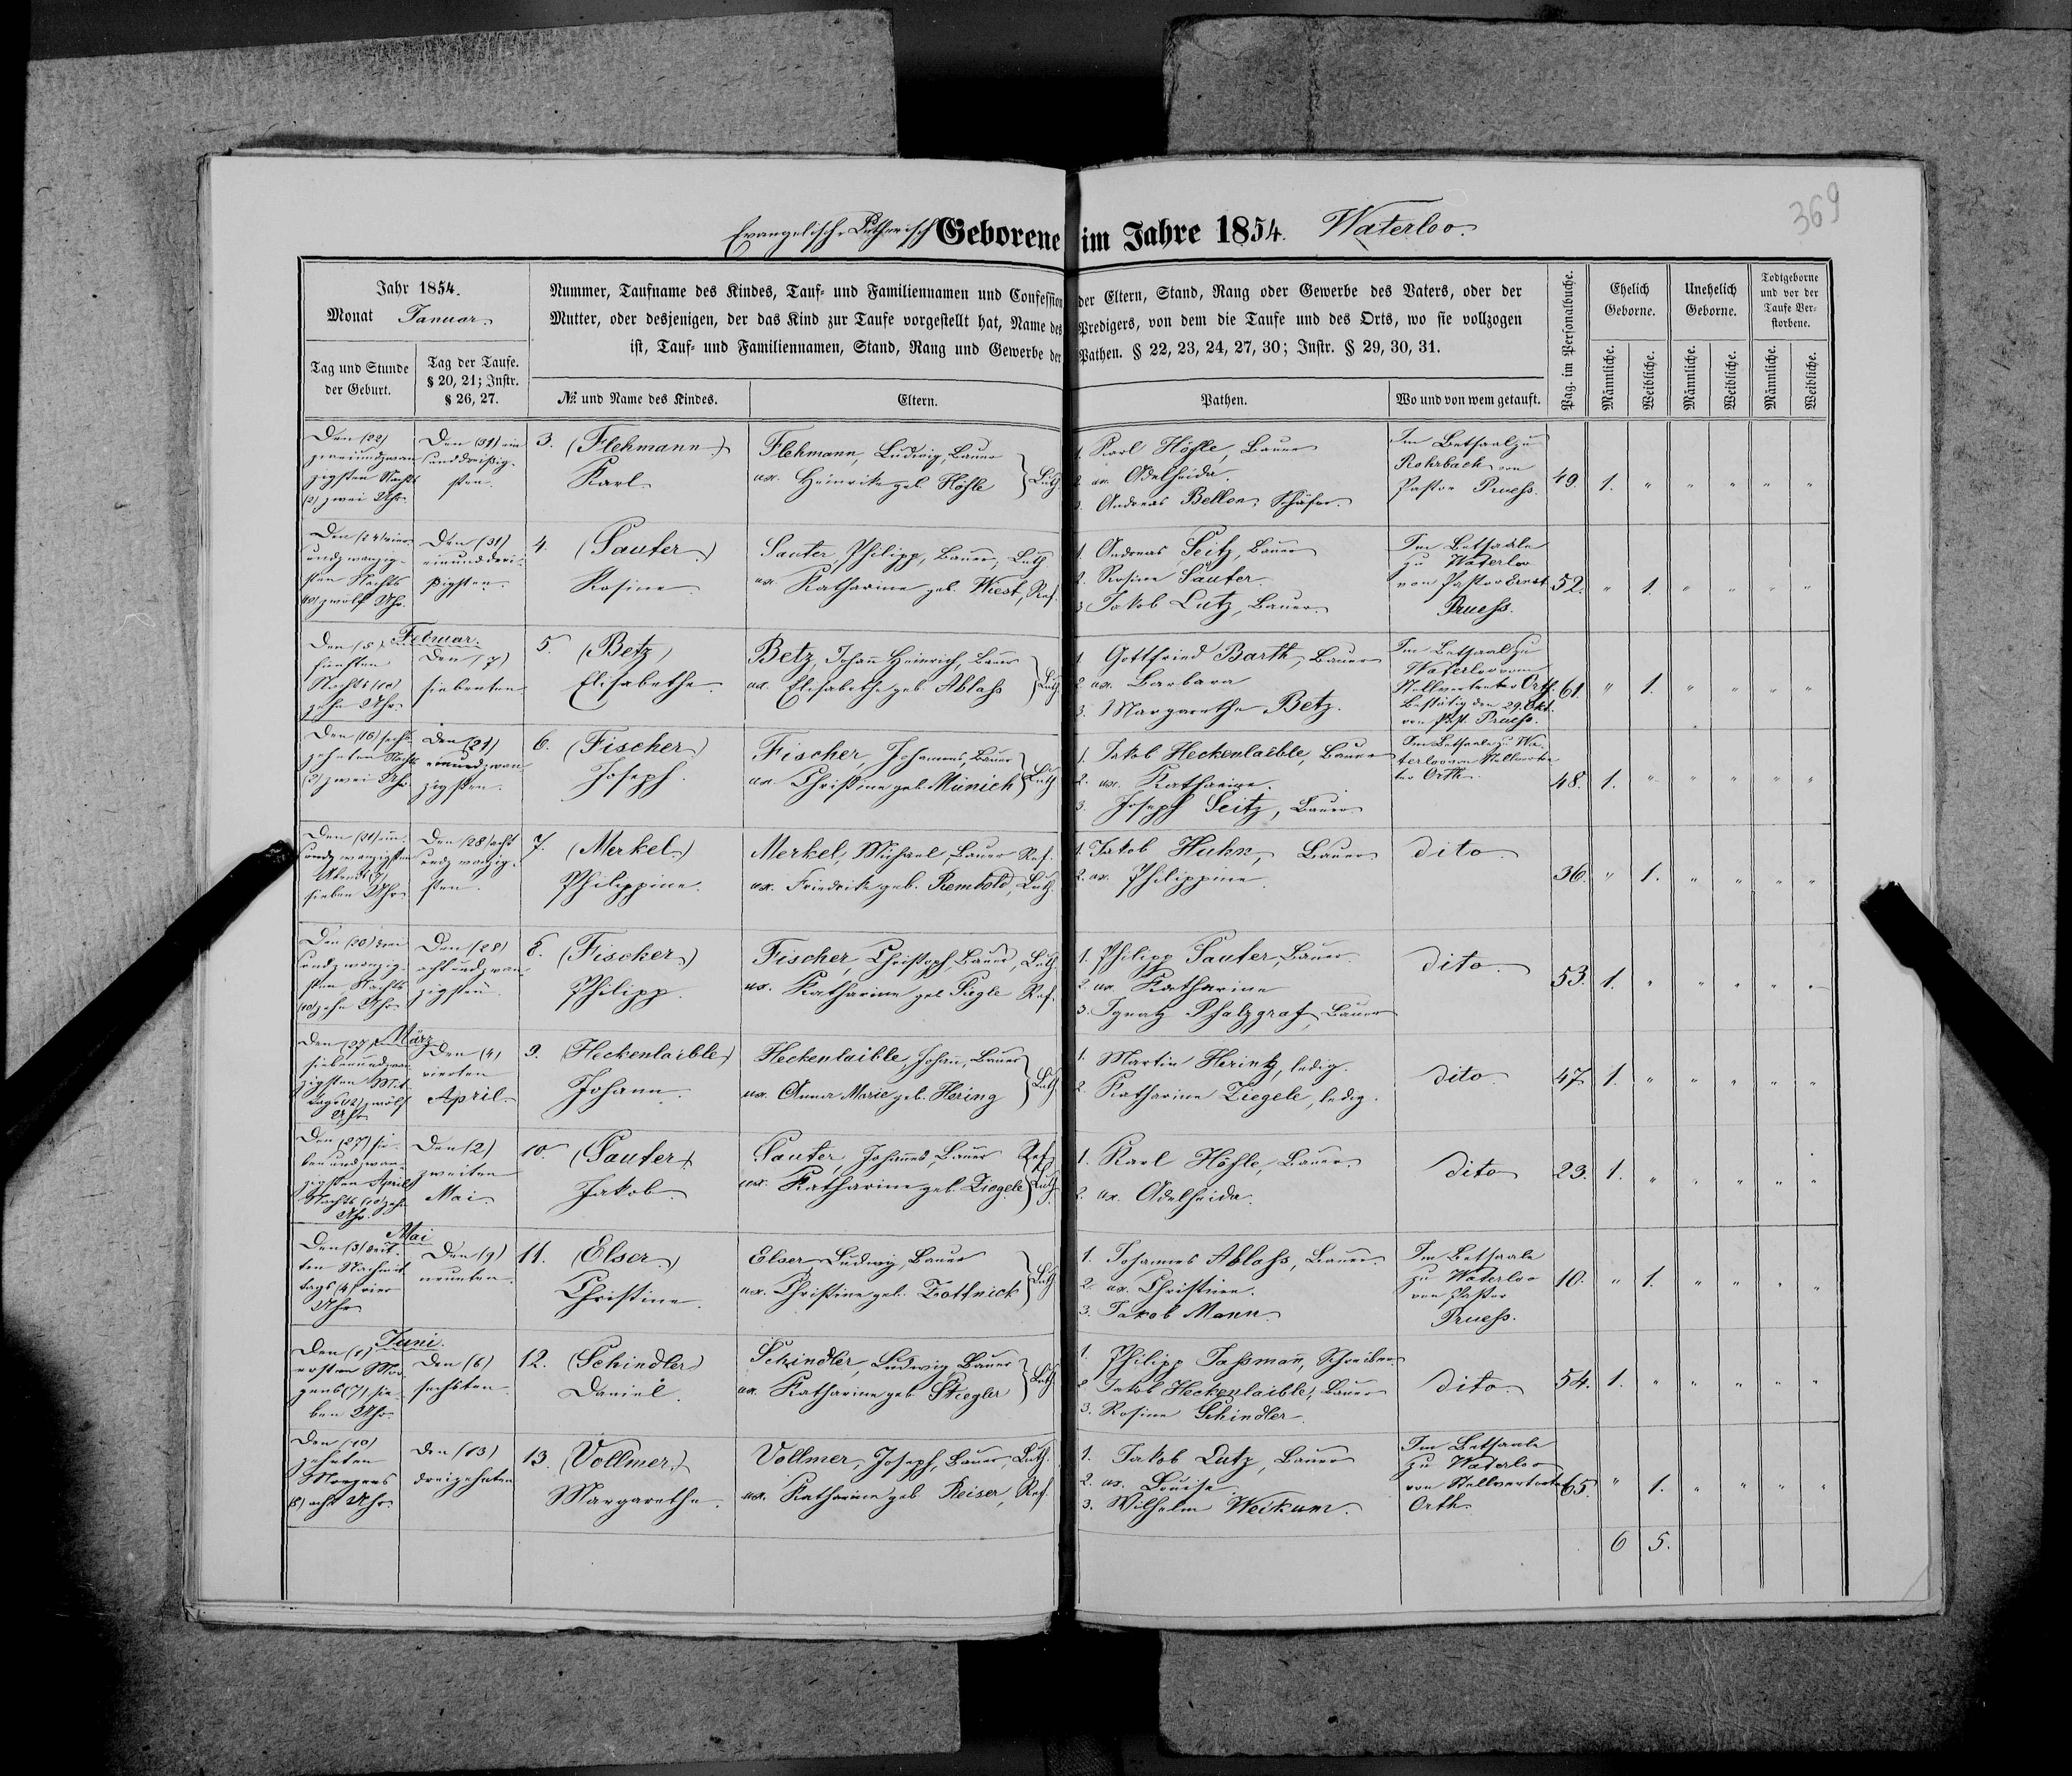 369
Evangelisch-Lutherisch Geborene im Jahre 1854. Waterloo.
Jahr 1854.
Monat Januar.
Nummer, Taufname des Kindes, Tauf- und Familiennamen und Confession der Eltern, Stand, Rang oder Gewerbe des Vaters, oder der
Mutter, oder desjenigen, der das Kind zur Taufe vorgestellt hat, Name des Predigers, von dem die Taufe und des Orts, wo sie vollzogen
ist, Tauf- und Familiennamen, Stand, Rang und Gewerbe der Pathen. § 22, 23, 24, 27, 30; Instr. § 29, 30, 31.
Tag und Stunde
der Geburt.
Tag der Taufe.
§ 20, 21; Instr.
§ 26, 27.
№ und Name des Kindes.
Eltern.
Pathen.
Wo und von wem getauft.
Pag. im Personalbuche.
Ehelich
Geborne.
Unehelich
Geborne.
Todtgeborne
und vor der
Taufe Ver-
storbene.
Männliche.
Weibliche.
Männliche.
Weibliche.
Männliche.
Weibliche.
Den (22)
zweiundzwan
zigsten Nachts
(2) zwei Uhr.
Den (31) ein
unddreißig-
sten.
3. (Flehmann)
Karl.
Flehmann, Ludwig, Bauer
ux. Heinrike geb. Höfle
Luth.
1. Karl Höfle, Bauer
2. ux. Adelheida.
3. Andreas Bellon, Schäfer.
Im Betsaal zu
Rohrbach von
Pastor Pruess.
49. 1. " " " " "
Den (24) vier
undzwanzig-
sten Nachts
zwölf Uhr.
Den (31)
einunddrei-
ßigsten.
4. (Sauter)
Rosine.
Sauter, Philipp, Bauer, Luth
ux. Katharine geb. Wiest, Ref.
1. Andreas Seitz, Bauer
2. Rosine Sauter.
3. Jakob Lutz, Bauer.
Im Betsaale
zu Waterloo
von Pastor Ernst
Pruess.
52. " 1. " " " "
Februar.
Den (5)
fünften
Nachts (10)
zehn Uhr.
Den (7)
siebenten
5. (Betz)
Elisabethe.
Betz, Johann Heinrich, Bauer
ux. Elisabethe geb. Ablass
Luth
1. Gottfried Barth, Bauer
2. ux. Barbara
3. Margarethe Betz.
Im Betsaal zu
Waterloo vom
Stellvertreter Orth.
Bestätig den 29. Okt.
von Past. Pruess.
61. " 1. " " " "
Den (16) sech-
zehnten Nachts
(2) zwei Uhr.
Den (21)
einundzwan
zigsten.
6. (Fischer)
Joseph.
Fischer, Johannes, Bauer
ux. Christine geb. Münich
Luth
1. Jakob Heckenlaible, Bauer
2. ux. Katharine.
3. Joseph Seitz, Bauer
Im Betsaale zu Wa-
terloo von Stellvertre
ter Orth.
48. 1. " " " " "
Den (21) ein
undzwanzigsten
Abends (7)
sieben Uhr.
Den (28) acht
undzwanzig-
sten.
7. (Merkel)
Philippine.
Merkel, Michael, Bauer Ref.
ux. Friedrike geb. Rembold, Luth.
1. Jakob Huhn, Bauer
2. ux. Philippine.
dito.
36. " 1. " " " "
undzwanzig-
sten Nachts
(10) zehn Uhr.
Den (28)
achtundzwan
zigsten.
8. (Fischer)
Philipp.
Fischer, Christoph, Bauer, Luth.
ux. Katharine geb. Siegle Ref.
1. Philipp Sauter, Bauer.
2. ux. Katharine
3. Ignatz Phalzgraf, Bauer
dito.
53. 1. " " " " "
März
Den (27)
siebenundzwan
zigsten Mit-
tags (12) zwölf
Uhr
Den (4)
vierten
April.
9. (Heckenlaible)
Johann.
Heckenlaible, Johann, Bauer
ux. Anna Marie geb. Hering
Luth.
1. Martin Herintz, ledig.
2. Katharine Ziegele, ledig.
dito.
47 1. " " " " "
Den (27) sie-
benundzwan-
zigsten April
Nachts (10) zehn
Uhr.
Den (2)
zweiten
Mai.
10. (Sauter)
Jakob.
Sauter, Johannes, Bauer Ref.
ux. Katharine geb. Ziegele Luth.
1. Karl Höfle, Bauer.
2. ux. Adelheida.
dito
23. 1. " " " " "
Mai
Den (3) drit-
ten Nachmit
tags (4) vier
Uhr
Den (9)
neunten.
11. (Elser)
Christine.
Elser Ludwig, Bauer
ux. Christine geb. Zottnick
Luth
1. Johannes Ablass, Bauer.
2. ux. Christine.
3. Jakob Mann.
Im Betsaale
zu Waterloo
von Pastor
Pruess.
10. " 1. " " " "
Juni.
Den (1)
ersten Mor-
gens (7) sie-
ben Uhr.
Den (6)
sechsten.
12. (Schindler)
Daniel.
Schindler, Ludwig Bauer
ux. Katharine geb. Stiegler
Luth
1. Philipp Jassmann, Schreiber
2. Jakob Heckenlaible, Bauer
3. Rosine Schindler.
dito.
54. 1. " " " " "
Den (10)
zehnten
Morgens
(8) acht Uhr.
Den (13)
dreizehnten
13. (Vollmer)
Margarethe.
Vollmer, Joseph, Bauer, Luth.
ux. Katharine geb. Reiser, Ref.
1. Jakob Lutz, Bauer
2. ux. Louise.
3. Wilhelm Weikum.
Im Betsaale
zu Waterloo
von Stellvertreter
Orth.
65. " 1. " " " "
6 5.